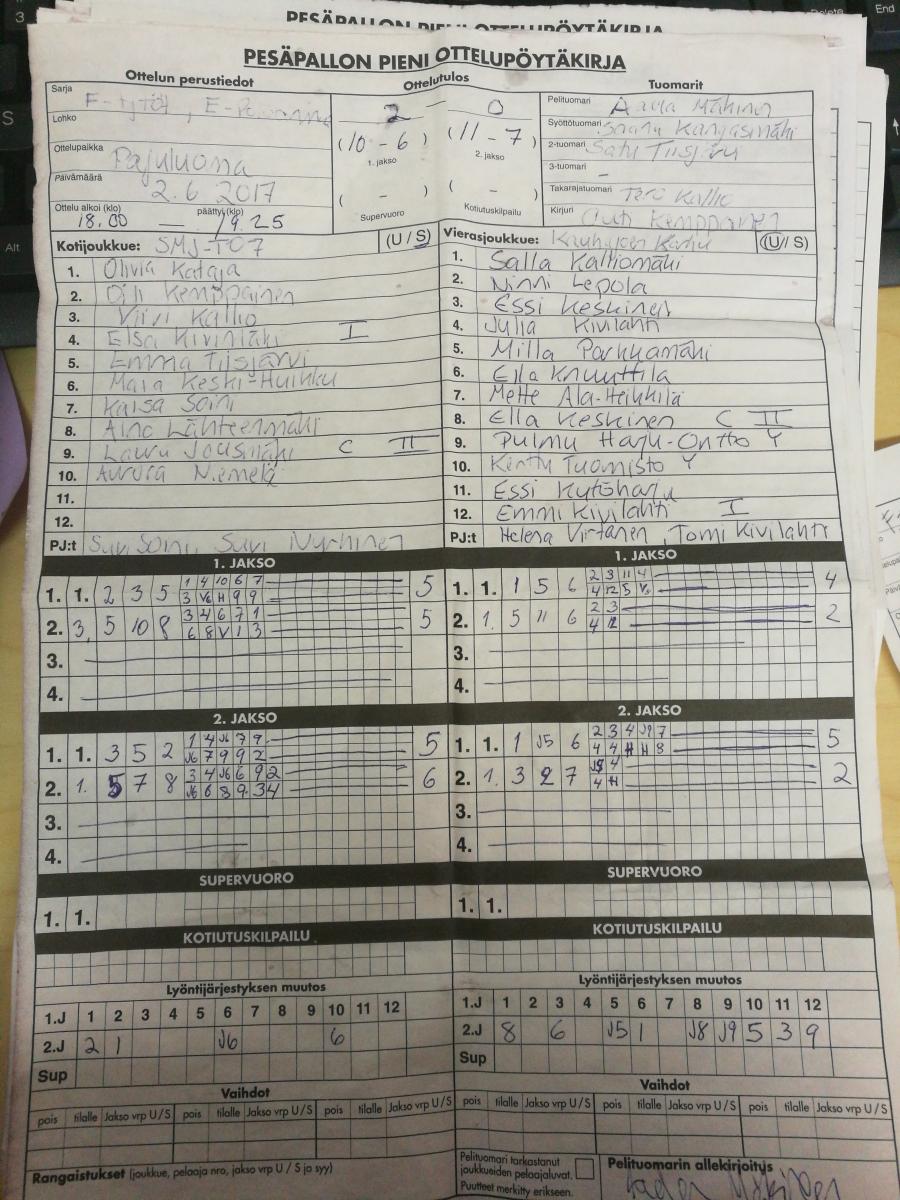 PESÄPALLON PIENI OTTELUPÖYTÄKIRJA
PESÄPALLON PIENI OTTELUPÖYTÄKIRJA
Ottelun perustiedot
Ottelutulos
Tuomarit
Sarja F-tytöt, E-
Lohko
Ottelupaikka Pajuluoma
Päivämäärä 2.6.2017
Ottelu alkoi (klo) 18.00 päättyi (klo) 19.25
2 – 0
(10 - 6) (11 - 7)
1. jakso 2. jakso
( - ) ( - )
Supervuoro Kotiutuskilpailu
Pelituomari Mäkinen
Syöttötuomari Kangasmäki
2-tuomari Satu Tiisjärvi
3-tuomari –
Takarajatuomari Tero Kallio
Kirjuri Outi Kemppainen
Kotijoukkue: SMJ-T07 (U / S)
1. Olivia Kataja
2. Oili Kemppainen
3. Viivi Kallio
4. Elsa Kivimäki I
5. Emma Tiisjärvi
6. Maia Keski-Huikku
7. Kaisa Soini
8. Aino Lähteenmäki
9. Laura Jousmäki C II
10. Aurora Niemelä
11.
12.
PJ:t Suvi Soini, Suvi Nyrhinen
Vierasjoukkue: Kauhajoen Karhu (U / S)
1. Salla Kalliomäki
2. Ninni Lepola
3. Essi Keskinen
4. Julia Kivilahti
5. Milla Parkkamäki
6. Ella Knuuttila
7. Mette Ala-Heikkilä
8. Ella Keskinen C II
9. Pulmu Harju-Ontto Y
10. Kerttu Tuomisto Y
11. Essi Kytöharju
12. Emmi Kivilahti I
PJ:t Helena Virtanen, Tomi Kivilahti
1. JAKSO
1. 1. 2 3 5 1 4 10 6 7 5
3 V6 H 9 9
2. 3. 5 10 8 3 4 6 7 1 5
6 8 V 1 3
3.
4.
1. JAKSO
1. 1. 1 5 6 2 3 11 4 4
4 12 5 V
2. 1. 5 11 6 2 3 2
4 12
3.
4.
2. JAKSO
1. 1. 3 5 2 1 4 J6 7 9 5
J6 7 9 9 2
2. 1. 5 7 8 3 4 J6 6 9 2 6
J6 6 8 9 3 4
3.
4.
2. JAKSO
1. 1. 1 J5 6 2 3 4 J9 7 5
4 4 H H 8
2. 1. 3 2 7 J5 4 2
4 H
3.
4.
SUPERVUORO
1. 1.
SUPERVUORO
1. 1.
KOTIUTUSKILPAILU
KOTIUTUSKILPAILU
Lyöntijärjestyksen muutos
1.J 1 2 3 4 5 6 7 8 9 10 11 12
2.J 2 1 J6 6
Sup
Lyöntijärjestyksen muutos
1.J 1 2 3 4 5 6 7 8 9 10 11 12
2.J 8 6 J5 1 J8 J9 5 3 9
Sup
Vaihdot
pois tilalle Jakso vrp U / S pois tilalle Jakso vrp U / S pois tilalle Jakso vrp U / S
Vaihdot
pois tilalle Jakso vrp U / S pois tilalle Jakso vrp U / S pois tilalle Jakso vrp U / S
Rangaistukset (joukkue, pelaaja nro, jakso vrp U / S ja syy)
Pelituomari tarkastanut
joukkueiden pelaajaluvat.
Puutteet merkitty erikseen.
Pelituomarin allekirjoitus